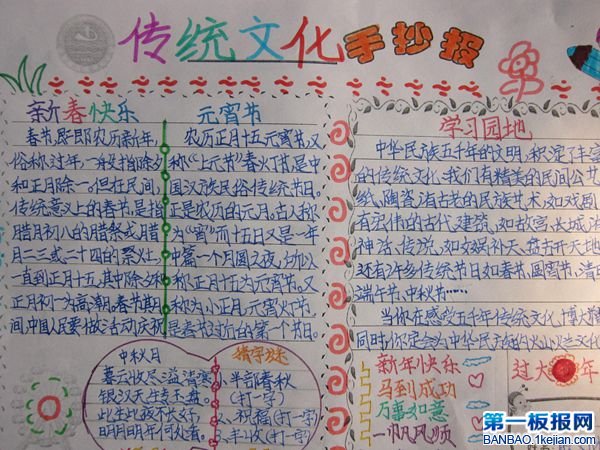 传统文化手抄报
新春快乐
春节,即郎农历新年,
俗称过年,一般指除夕
和正月除一。但在民间,
传统意义上的春节,是指
腊月初八的腊祭或腊
月二三或二十四的祭灶
一直到正月十五,其中除夕和
正月初一为高潮。春节期
间,中国人民要做活动庆祝
元宵节
农历正月十五元宵节,又
称“上元节”春火灯节,是中
国汉族民俗传统节日。
正是农历的元月,古人称
为“宵”而十五日又是一年
中第一个月圆之夜,所以
称正月十五为元宵节。又
称为小正月、元宵火丁节,
是春节过后的第一个节日。
学习园地
中华民族五千年的文明,积淀了丰富
的传统文化,我们有精美的民间
纸、陶瓷;有古老的民族艺术,如戏剧
有宏伟的古代建筑,如故宫、长城
神话、传游,如女娲补天、盘古开天地
还有许多传统节日如春节、国宵节、清明
端午节、中秋节……
当你在感觉五千年传统文化,博大精
同时,你定会为中华民族的
中秋月
暮云收尽溢清寒
银汉无声转玉盘。
此生此夜不长好,
明月明年何处看。
猜字谜
1、半部春秋
(打一字)
2、祝福(打一字)
3、丰收(打一字)
新年快乐
马到成功
万事如意
一帆风顺
过大年
第一板报网
BANBAO.1kejian.com